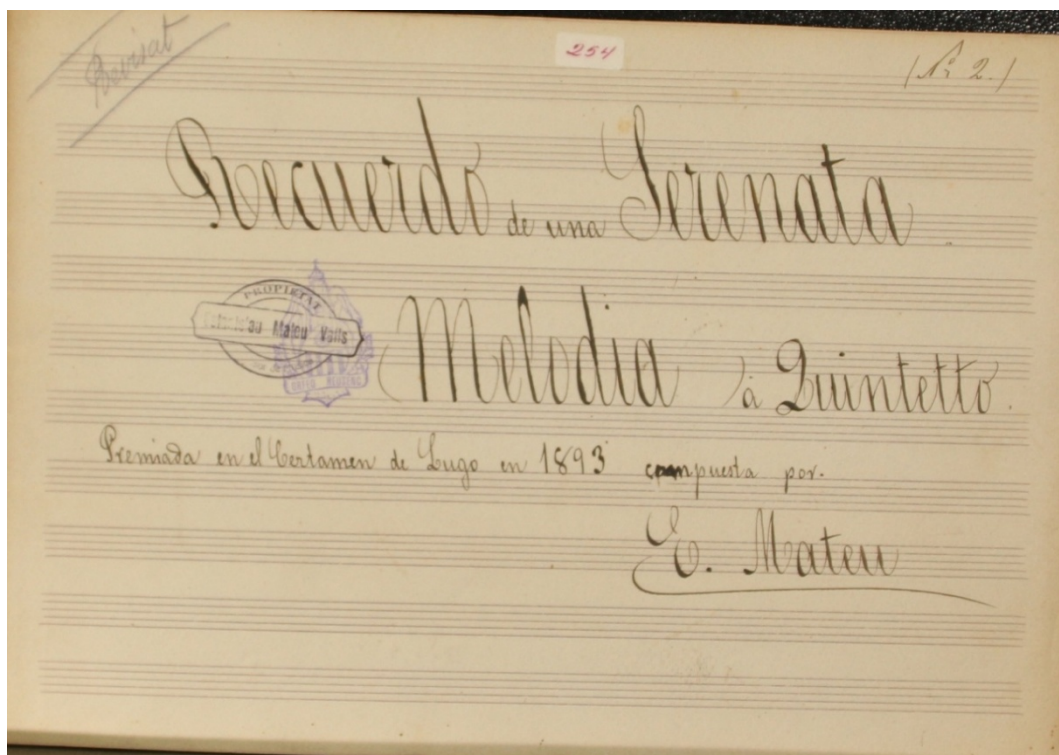 Revisat
254
(Nº 2.)
Recuerdo de una Serenata.
PROPIETAT
Estanislau Mateu Valls
ORFEÓ REUSENC
Melodia à Quintetto.
Premiada en el Certamen de Lugo en 1893 compuesta por.
E. Mateu